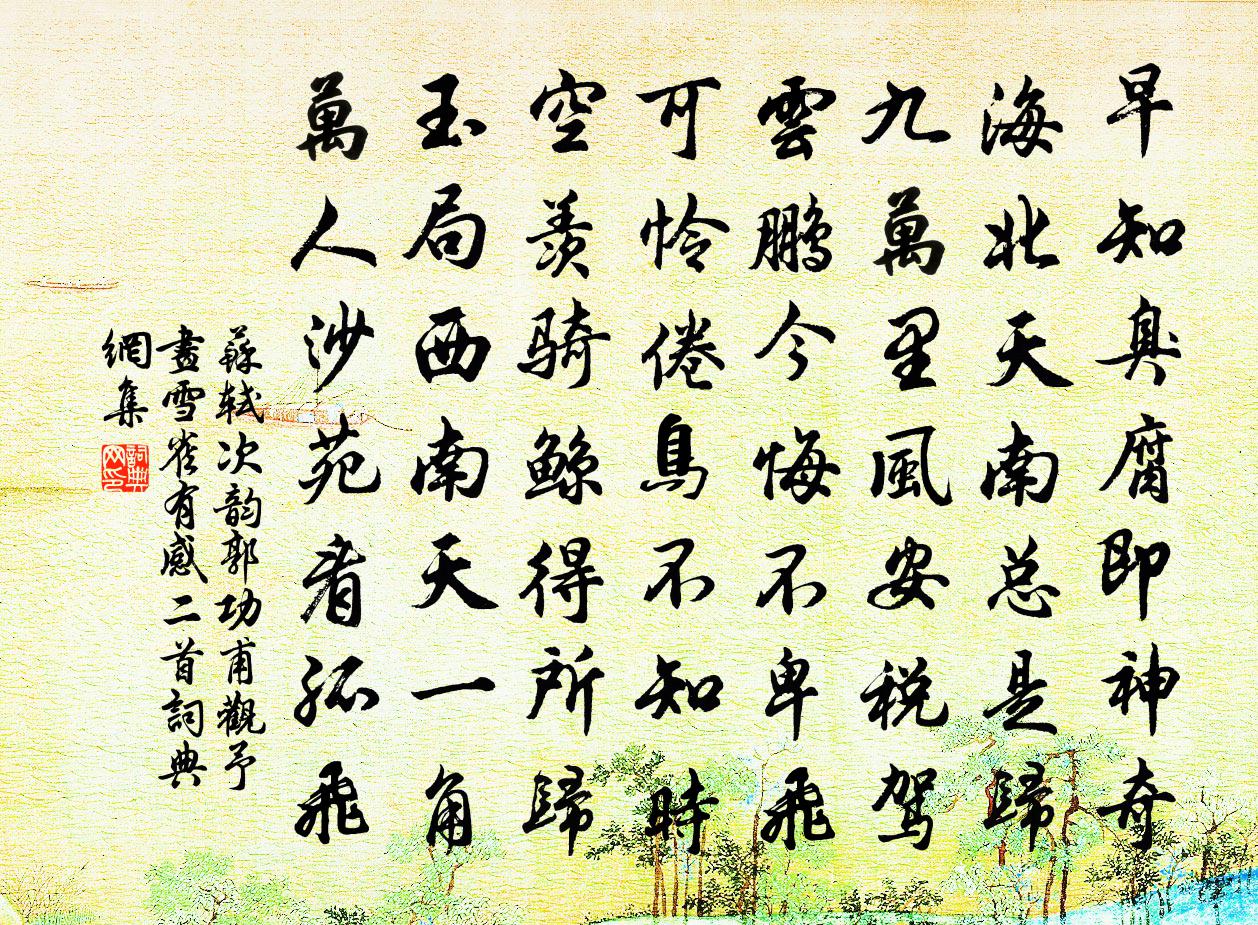 早知臭腐即神奇
海北天南总是歸
九萬里風安税駕
雲鵬今悔不卑飛
可怜倦鳥不知時
空羨騎鯨得所歸
玉局西南天一角
萬人沙苑看孤飛
蘇軾次韵郭功甫觀予
畫雪雀有感二首詞典
網集
詞典
网印